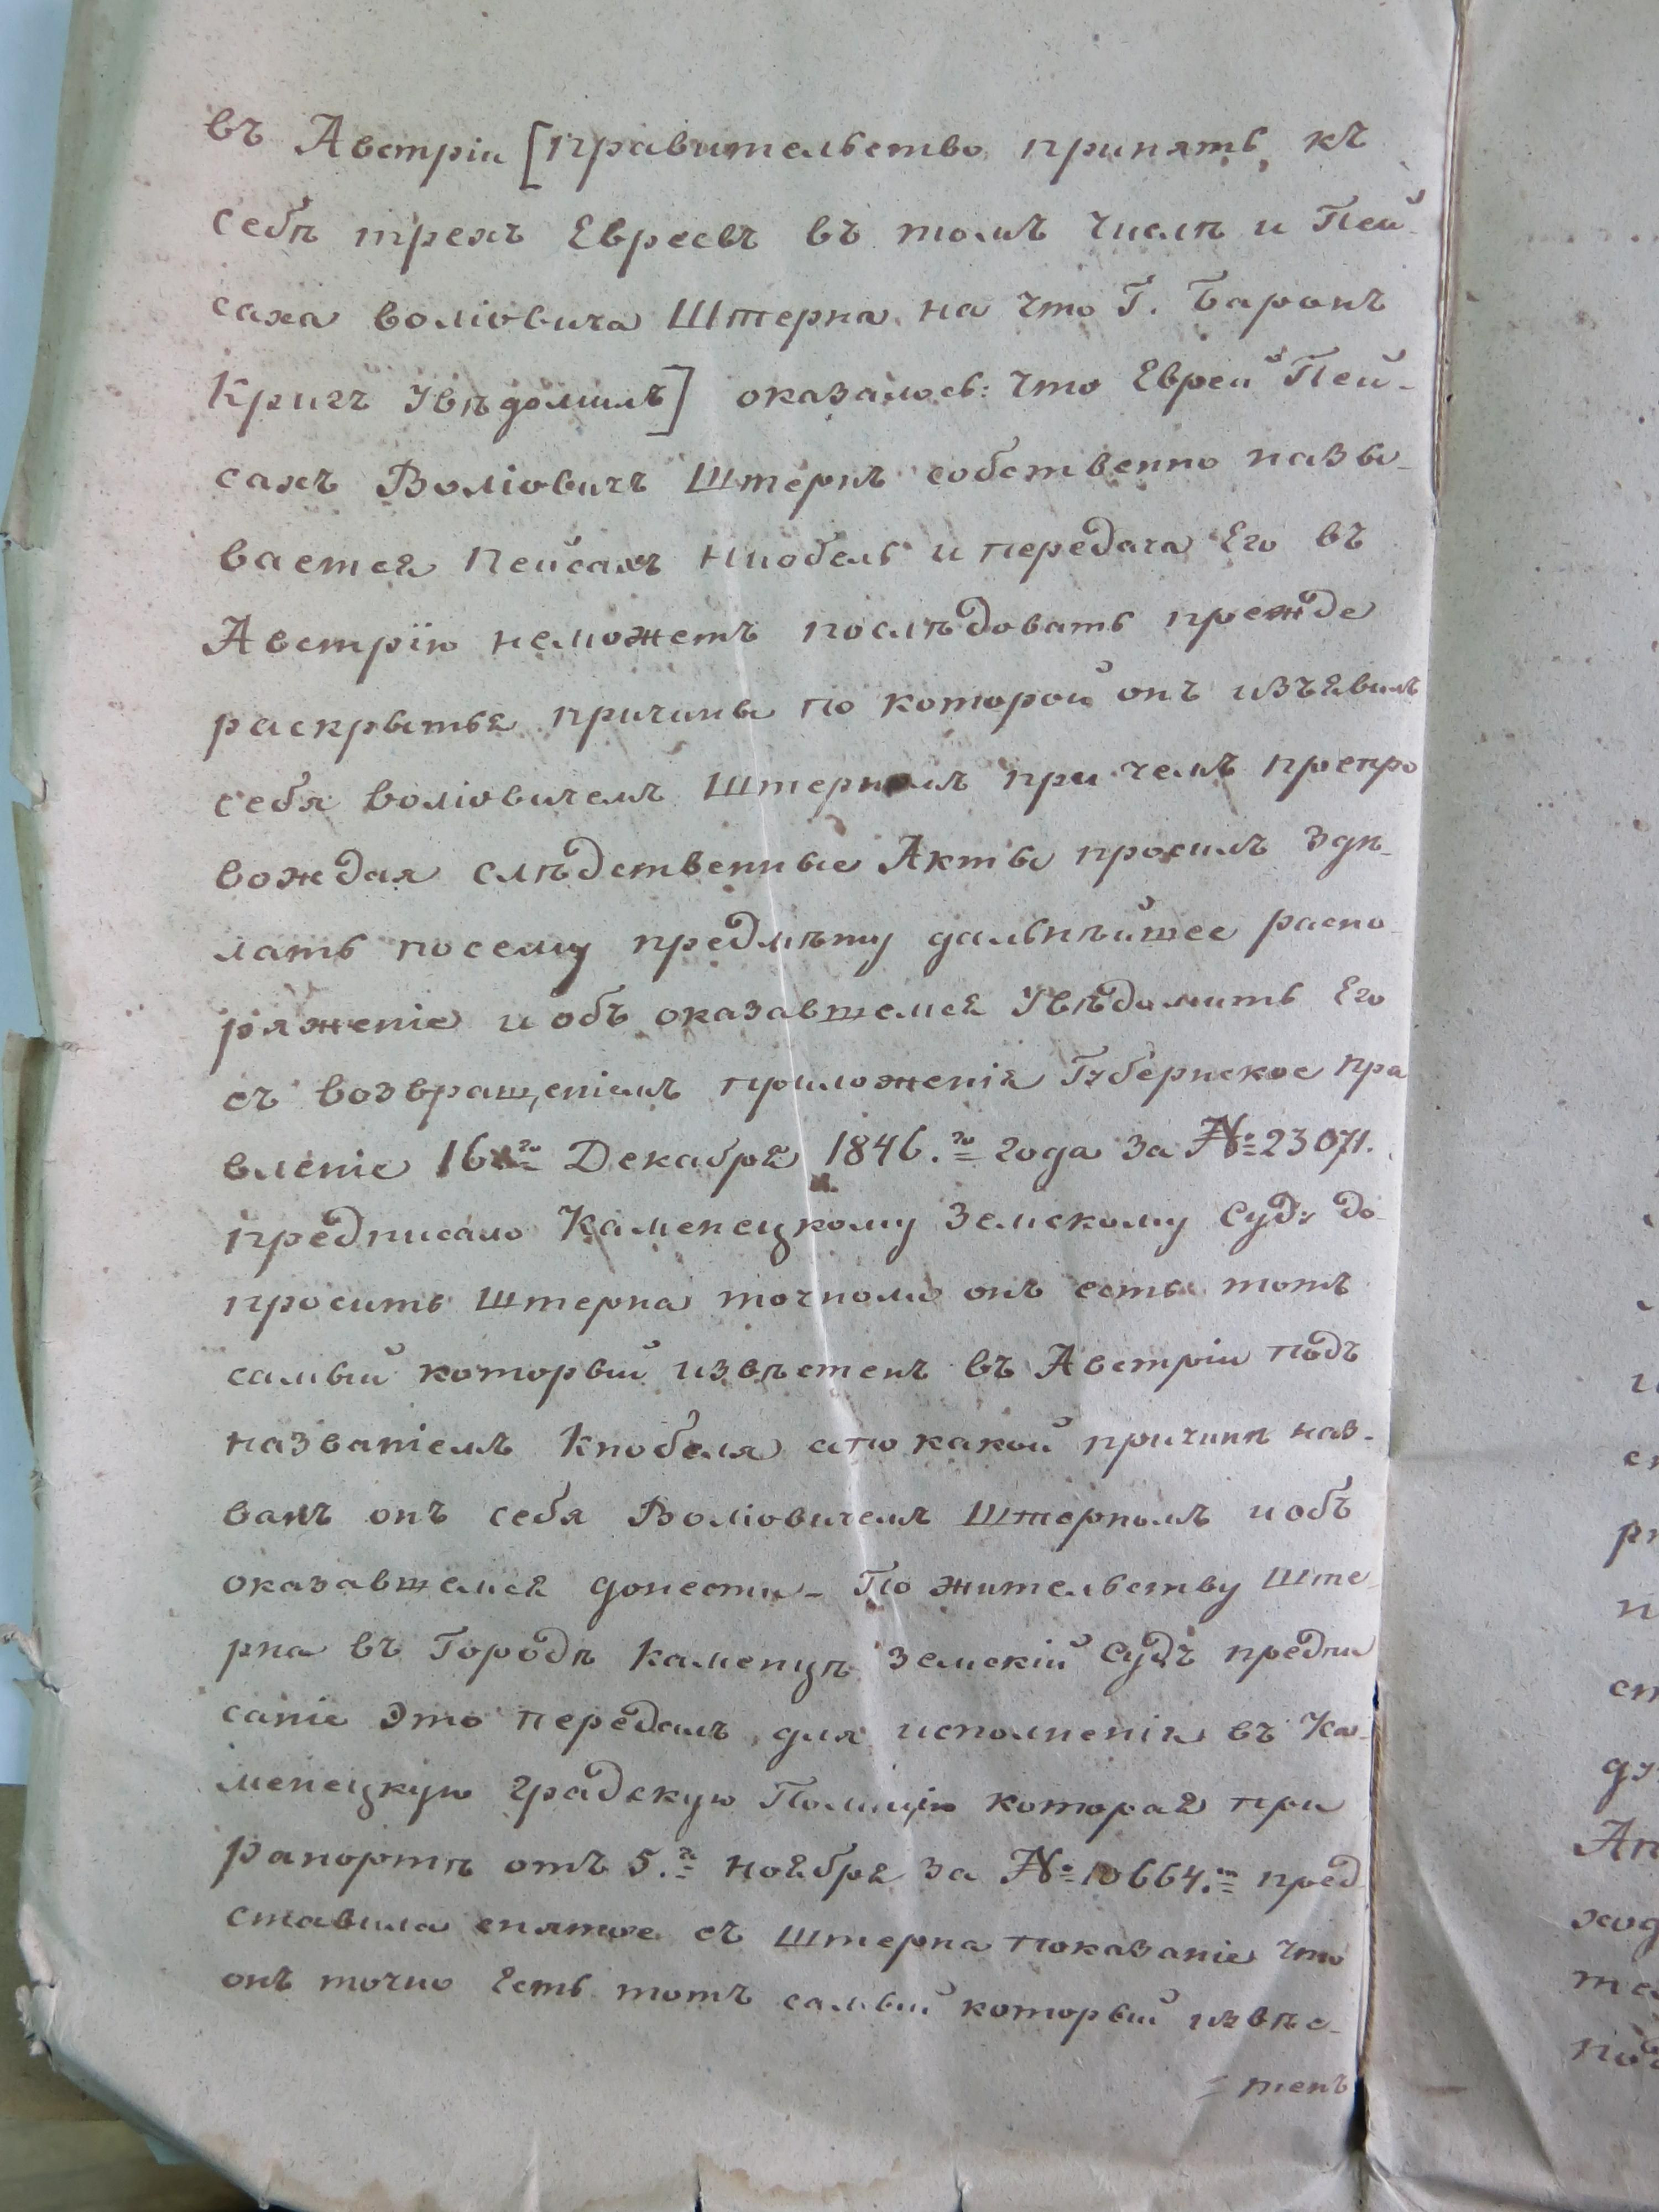 въ Австріи [Правительство принять къ
себѣ трехъ Евреевъ въ томъ числѣ и Пей-
саха Воліовича Штерна на что Г. Баронъ
Кригъ Увѣдомилъ] оказалось: что Еврей Пей-
сахъ Воліовичъ Штернъ собственно назы-
вается Пейсахъ Кнобель и передача Его въ
Австрію неможетъ послѣдовать прежде
раскрытья причины по которой онъ изъявилъ
себя Воліовичемъ Штерномъ при чемъ препро
вождая слѣдственные Акты просилъ здѣ-
лать посему предмѣту дальнѣйшее распо-
ряженіе и объ оказавшемся Увѣдомить Его
съ возвращеніемъ приложенія Губернское пра
вленіе 16го Декабря 1846.го года за № 23071.
предписало Каменецкому Земскому Суду до-
просить Штерна точноли онъ есть тотъ
самый который извѣстенъ въ Австріи подъ
названіемъ Кнобеля ипо какой причинѣ наз-
валъ онъ себя Воліовичемъ Штерномъ и объ
оказавшемся донести – По жительству Ште-
рна въ Городѣ Каменцѣ Земскій Судъ предпи
саніе Это передалъ для исполненія въ Ка-
менецкую градскую Полицію которая при
рапортѣ отъ 5.го Ноября за № 10664.мъ пред
ставила снятое съ Штерна показаніе что
онъ точно Есть тотъ самый который извѣс-
= тенъ